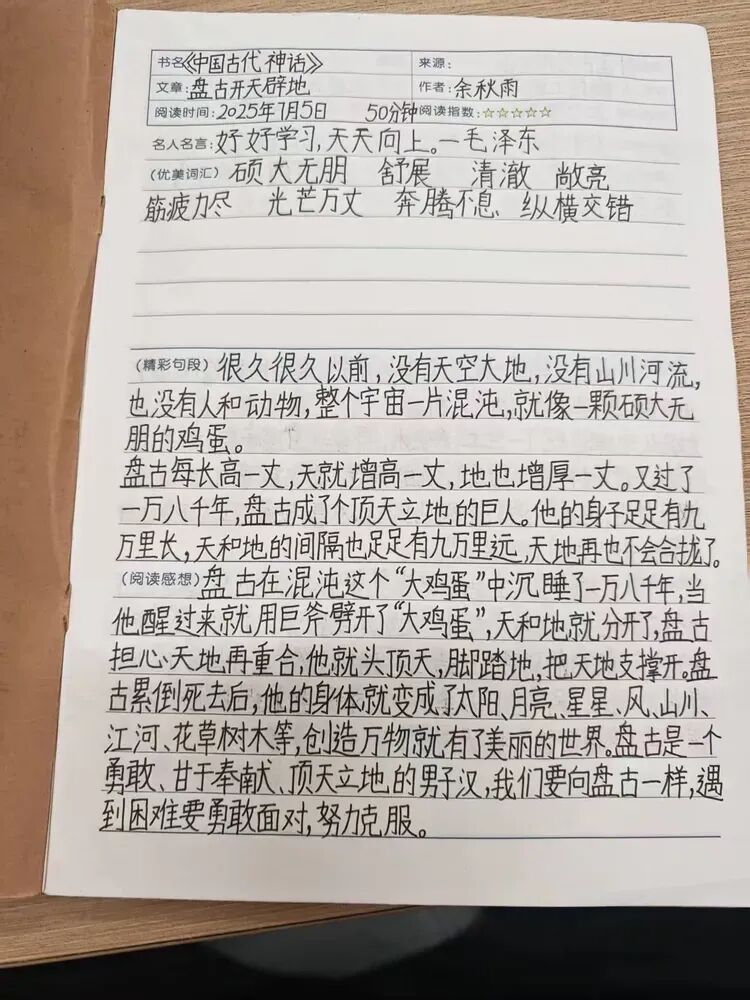 书名《中国古代神话》 来源：
文章：盘古开天辟地 作者：余秋雨
阅读时间：2025年7月5日 50分钟 阅读指数：☆☆☆☆☆
名人名言：好好学习，天天向上。—毛泽东
（优美词汇）硕大无朋 舒展 清澈 敞亮
筋疲力尽 光芒万丈 奔腾不息 纵横交错
（精彩句段）很久很久以前，没有天空大地，没有山川河流，
也没有人和动物，整个宇宙一片混沌，就像一颗硕大无
朋的鸡蛋。
盘古每长高一丈，天就增高一丈，地也增厚一丈。又过了
一万八千年，盘古成了个顶天立地的巨人。他的身子足足有九
万里长，天和地的间隔也足足有九万里远，天地再也不会合拢了。
（阅读感想）盘古在混沌这个“大鸡蛋”中沉睡了一万八千年，当
他醒过来就用巨斧劈开了“大鸡蛋”，天和地就分开了，盘古
担心天地再重合，他就头顶天，脚踏地，把天地支撑开。盘
古累倒死去后，他的身体就变成了太阳、月亮、星星、风、山川、
江河、花草树木等，创造万物就有了美丽的世界。盘古是一个
勇敢、甘于奉献、顶天立地的男子汉，我们要向盘古一样，遇
到困难要勇敢面对，努力克服。